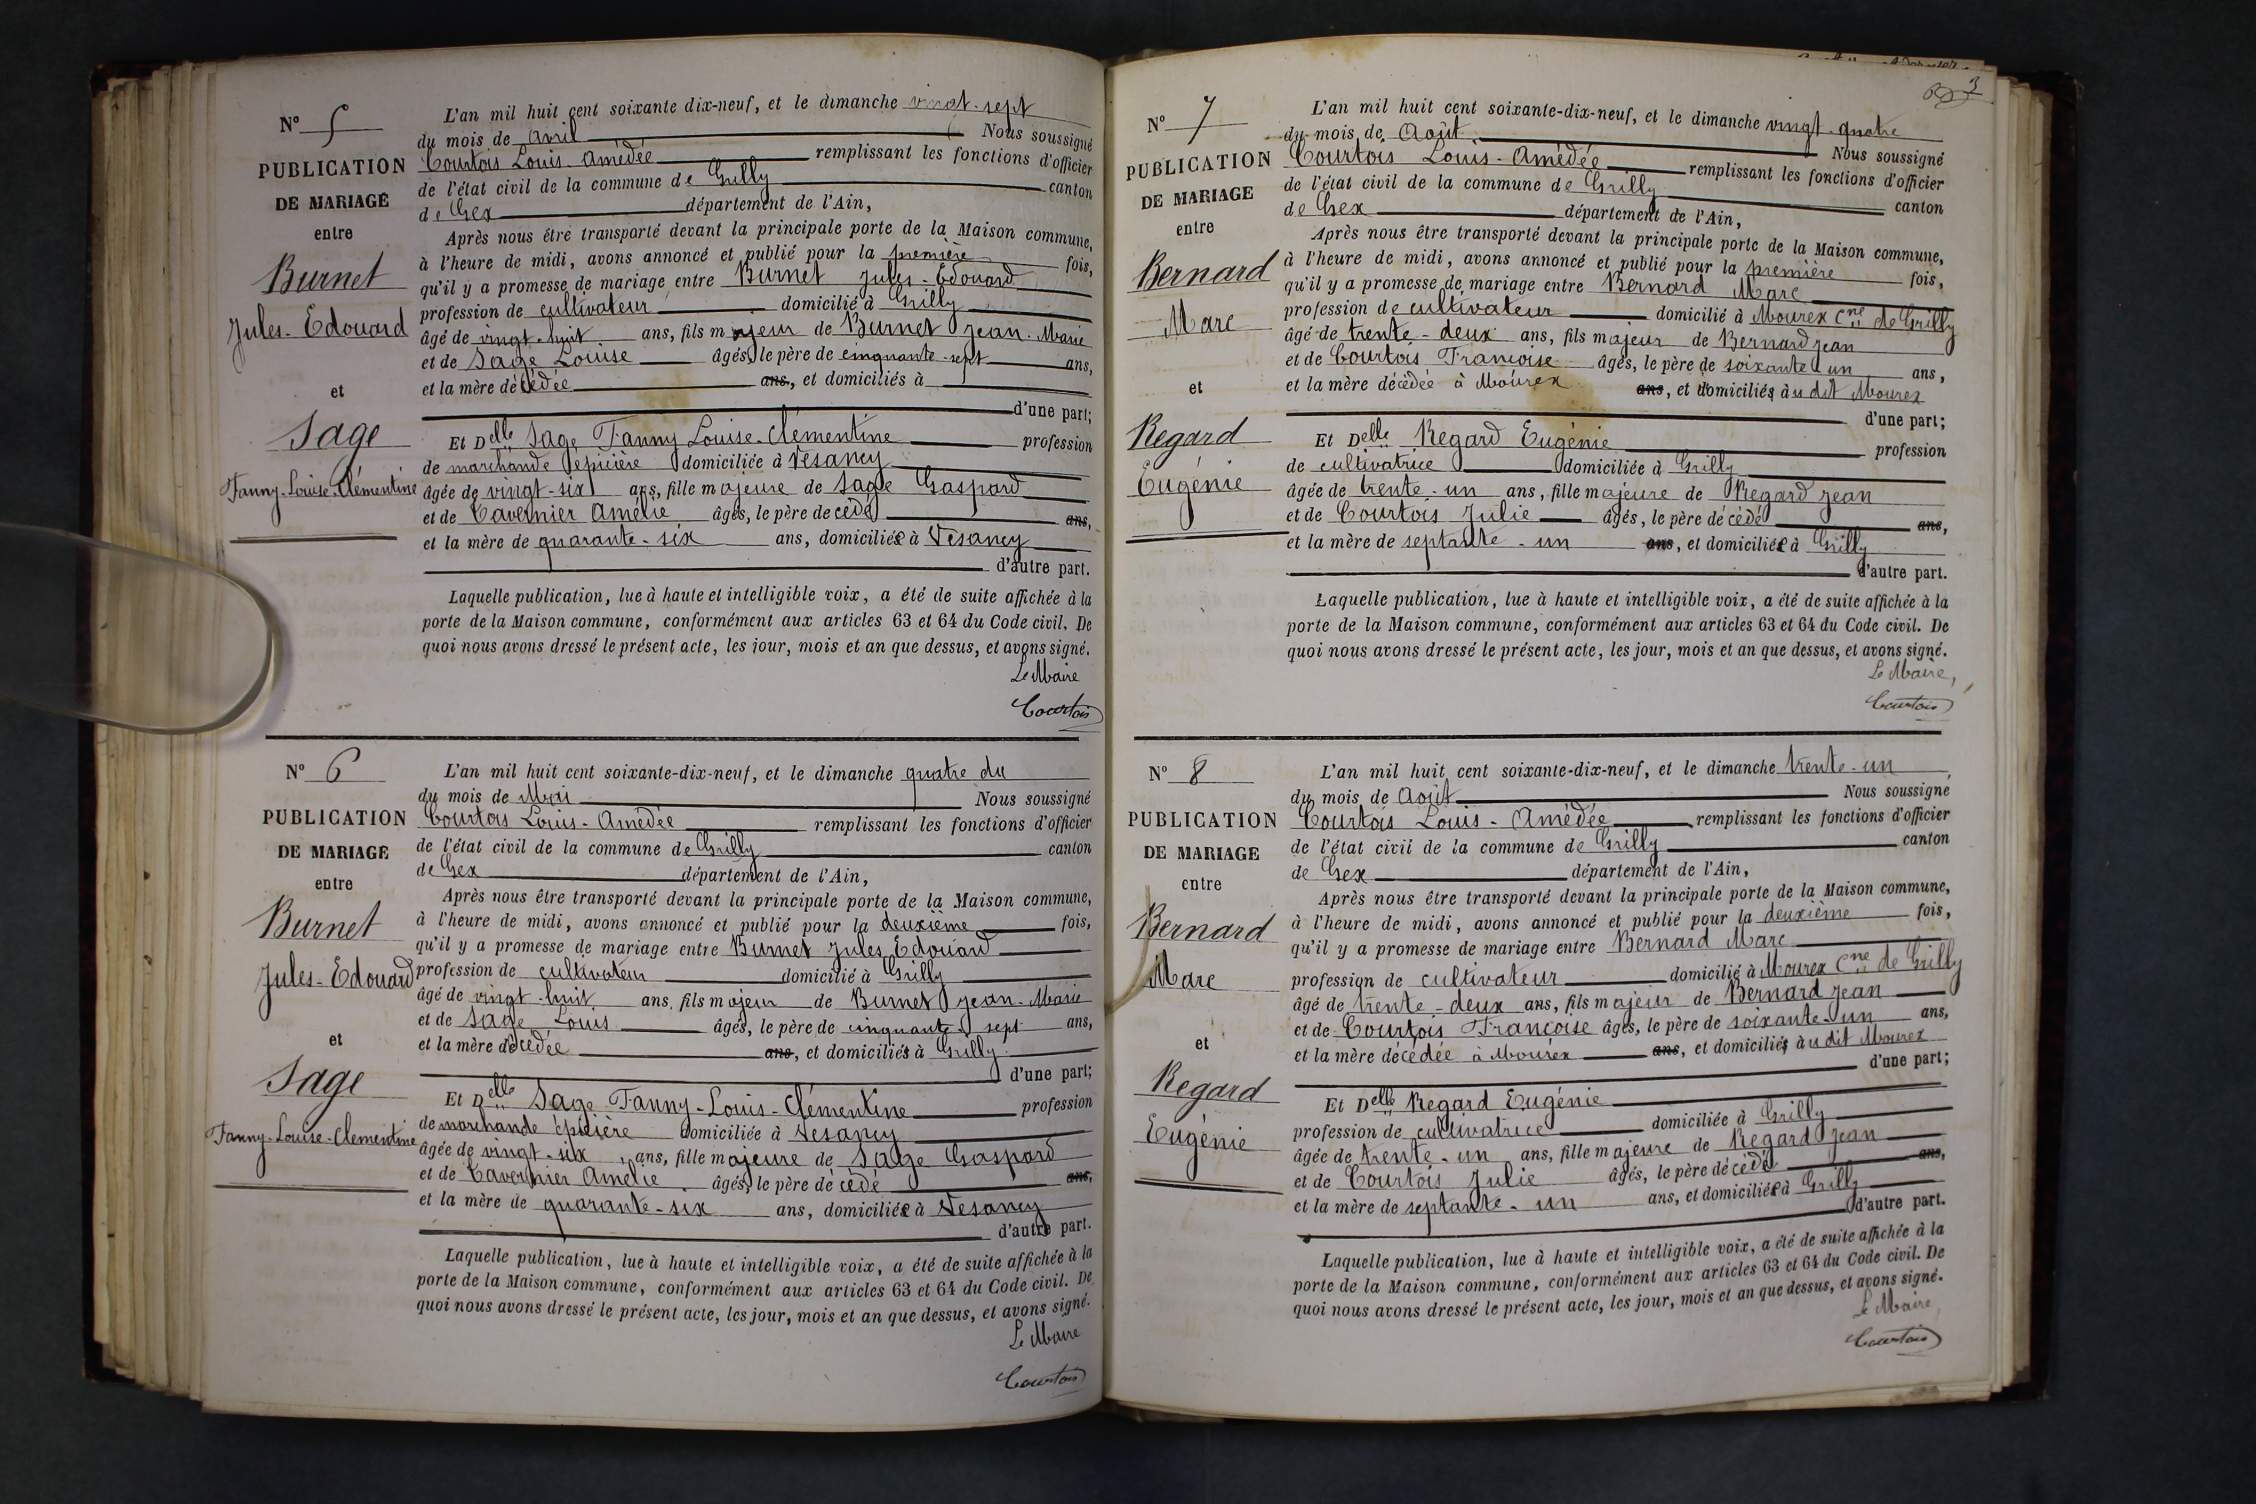 N° 5
PUBLICATION
DE MARIAGE
entre
Burnet
Jules-Edouard
et
Sage
Fanny-Louise-Clémentine
L'an mil huit cent soixante dix-neuf, et le dimanche vingt-sept
du mois de avril Nous soussigné
Courtois Louis-Amédée remplissant les fonctions d'officier
de l'état civil de la commune de Grilly canton
de Gex département de l'Ain,
Après nous être transporté devant la principale porte de la Maison commune,
à l'heure de midi, avons annoncé et publié pour la première fois,
qu'il y a promesse de mariage entre Burnet Jules-Edouard
profession de cultivateur domicilié à Grilly
âgé de vingt-huit ans, fils majeur de Burnet Jean-Marie
et de Sage Louise âgés, le père de cinquante-sept ans,
et la mère décédée ans, et domiciliés à
d'une part;
Et Delle Sage Fanny Louise-Clémentine profession
de marchande épicière domiciliée à Vesancy
âgée de vingt-six ans, fille majeure de Sage Gaspard
et de Tavernier Amélie âgés, le père décédé ans,
et la mère de quarante-six ans, domiciliée à Vesancy
d'autre part.
Laquelle publication, lue à haute et intelligible voix, a été de suite affichée à la
porte de la Maison commune, conformément aux articles 63 et 64 du Code civil. De
quoi nous avons dressé le présent acte, les jour, mois et an que dessus, et avons signé.
Le Maire
Courtois
N° 6
PUBLICATION
DE MARIAGE
entre
Burnet
Jules-Edouard
et
Sage
Fanny-Louise-Clementine
L'an mil huit cent soixante-dix-neuf, et le dimanche quatre du
du mois de Mai Nous soussigné
Courtois Louis-Amédée remplissant les fonctions d'officier
de l'état civil de la commune de Grilly canton
de Gex département de l'Ain,
Après nous être transporté devant la principale porte de la Maison commune,
à l'heure de midi, avons annoncé et publié pour la deuxième fois,
qu'il y a promesse de mariage entre Burnet Jules Edouard
profession de cultivateur domicilié à Grilly
âgé de vingt-huit ans, fils majeur de Burnet Jean-Marie
et de Sage Louis âgés, le père de cinquante-sept ans,
et la mère décédée ans, et domiciliés à Grilly
d'une part;
Et Delle Sage Fanny-Louis-Clémentine profession
de marchande épicière domiciliée à Vesancy
âgée de vingt-six ans, fille majeure de Sage Gaspard
et de Tavernier Amelie âgés, le père décédé ans,
et la mère de quarante-six ans, domiciliée à Vesancy
d'autre part.
Laquelle publication, lue à haute et intelligible voix, a été de suite affichée à la
porte de la Maison commune, conformément aux articles 63 et 64 du Code civil. De
quoi nous avons dressé le présent acte, les jour, mois et an que dessus, et avons signé.
Le Maire
Courtois
3
N° 7
PUBLICATION
DE MARIAGE
entre
Bernard
Marc
et
Regard
Eugénie
L'an mil huit cent soixante-dix-neuf, et le dimanche vingt-quatre
du mois de Août Nous soussigné
Courtois Louis-Amédée remplissant les fonctions d'officier
de l'état civil de la commune de Grilly canton
de Gex département de l'Ain,
Après nous être transporté devant la principale porte de la Maison commune,
à l'heure de midi, avons annoncé et publié pour la première fois,
qu'il y a promesse de mariage entre Bernard Marc
profession de cultivateur domicilié à Mourex Cne de Grilly
âgé de trente-deux ans, fils majeur de Bernard Jean
et de Courtois Françoise âgés, le père de soixante un ans,
et la mère décédée à Mourex ans, et domiciliés au dit Mourex
d'une part;
Et Delle Regard Eugénie profession
de cultivatrice domiciliée à Grilly
âgée de trente-un ans, fille majeure de Regard Jean
et de Courtois Julie âgés, le père décédé ans,
et la mère de septante-un ans, et domiciliée à Grilly
d'autre part.
Laquelle publication, lue à haute et intelligible voix, a été de suite affichée à la
porte de la Maison commune, conformément aux articles 63 et 64 du Code civil. De
quoi nous avons dressé le présent acte, les jour, mois et an que dessus, et avons signé.
Le Maire,
Courtois
N° 8
PUBLICATION
DE MARIAGE
entre
Bernard
Marc
et
Regard
Eugénie
L'an mil huit cent soixante-dix-neuf, et le dimanche trente-un
du mois de Août Nous soussigné
Courtois Louis-Amédée remplissant les fonctions d'officier
de l'état civil de la commune de Grilly canton
de Gex département de l'Ain,
Après nous être transporté devant la principale porte de la Maison commune,
à l'heure de midi, avons annoncé et publié pour la deuxième fois,
qu'il y a promesse de mariage entre Bernard Marc
profession de cultivateur domicilié à Mourex Cne de Grilly
âgé de trente-deux ans, fils majeur de Bernard Jean
et de Courtois Françoise âgés, le père de soixante-un ans,
et la mère décédée à Mourex ans, et domiciliés au dit Mourex
d'une part;
Et Delle Regard Eugénie
profession de cultivatrice domiciliée à Grilly
âgée de trente-un ans, fille majeure de Regard Jean
et de Courtois Julie âgés, le père décédé ans,
et la mère de septante-un ans, et domiciliée à Grilly
d'autre part.
Laquelle publication, lue à haute et intelligible voix, a été de suite affichée à la
porte de la Maison commune, conformément aux articles 63 et 64 du Code civil. De
quoi nous avons dressé le présent acte, les jour, mois et an que dessus, et avons signé.
Le Maire,
Courtois